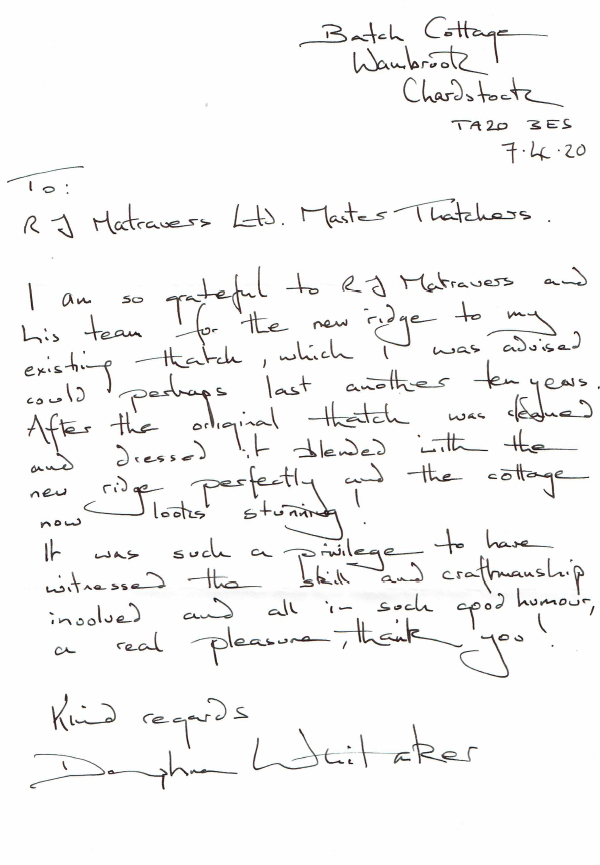 Batch Cottage
Wambrook
Chardstock
TA20 3ES
7.4.20
To:
R J Matravers Ltd. Master Thatchers.
I am so grateful to R J Matravers and
his team for the new ridge to my
existing thatch, which I was advised
could perhaps last another ten years.
After the original thatch was cleaned
and dressed it blended with the
new ridge perfectly and the cottage
now looks stunning!
It was such a privilege to have
witnessed the skill and craftmanship
involved and all in such good humour,
a real pleasure, thank you!
Kind regards
Daphne Whitaker